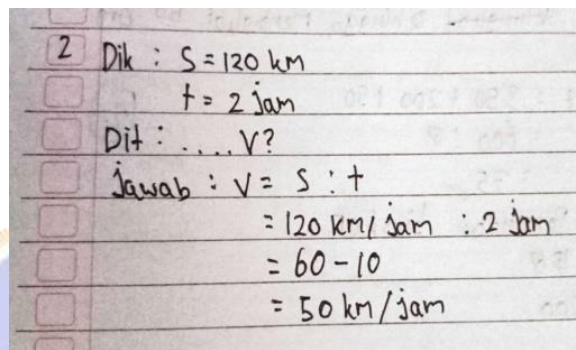 2 Dik : S = 120 km
t = 2 jam
Dit : .... V?
Jawab : V = S : t
= 120 km/jam : 2 jam
= 60 - 10
= 50 km/jam